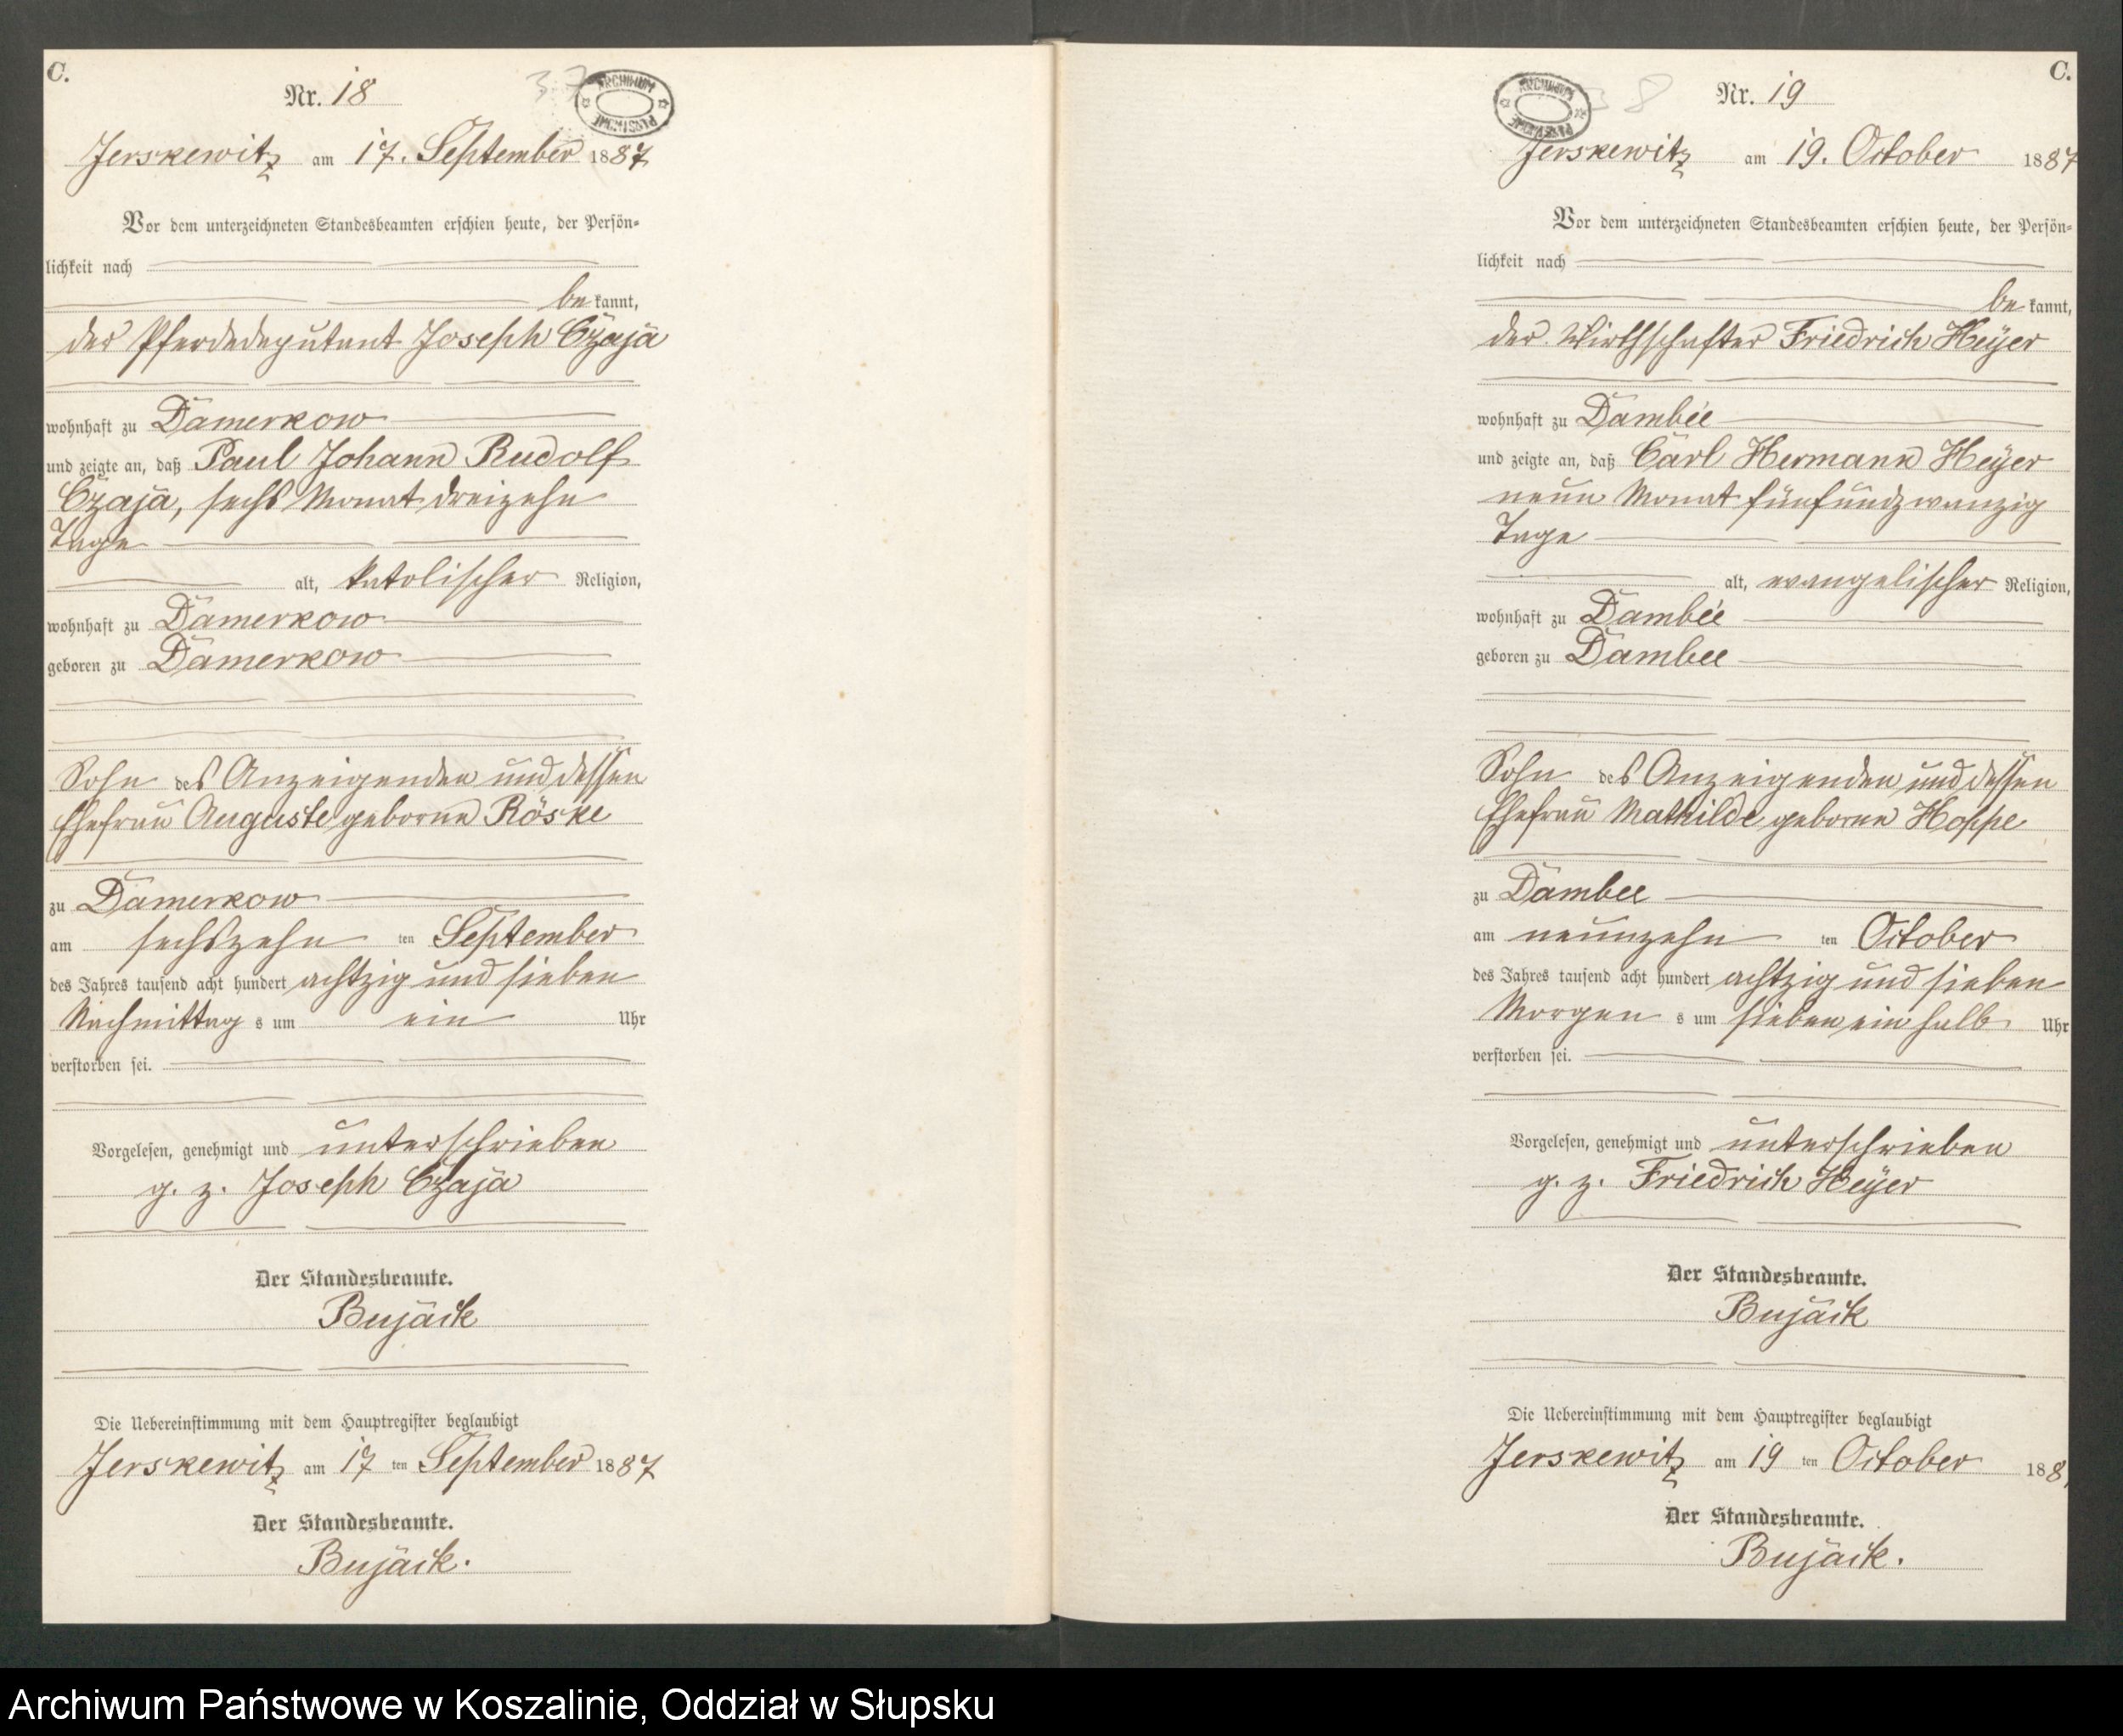 C.
Nr. 18
37
ARCHIWUM PAŃSTWOWE
Jerskewitz am 17. September 1887
Vor dem unterzeichneten Standesbeamten erschien heute, der Persön-
lichkeit nach
be kannt,
der Pferdedeputant Joseph Czaja
wohnhaft zu Damerkow
und zeigte an, daß Paul Johann Rudolf
Czaja, sechs Monat dreizehn
Tage
alt, katolischer Religion,
wohnhaft zu Damerkow
geboren zu Damerkow
Sohn des Anzeigenden und dessen
Ehefrau Auguste geborne Röske
zu Damerkow
am sechszehn ten September
des Jahres tausend acht hundert achtzig und sieben
Nachmittag s um ein Uhr
verstorben sei.
Vorgelesen, genehmigt und unterschrieben
g. z. Joseph Czaja
Der Standesbeamte.
Bujack
Die Uebereinstimmung mit dem Hauptregister beglaubigt
Jerskewitz am 17 ten September 1887
Der Standesbeamte.
Bujack.
C.
Nr. 19
38
ARCHIWUM PAŃSTWOWE
Jerskewitz am 19. October 1887
Vor dem unterzeichneten Standesbeamten erschien heute, der Persön-
lichkeit nach
be kannt,
der Wirthschafter Friedrich Heyer
wohnhaft zu Dambee
und zeigte an, daß Carl Hermann Heyer
neun Monat fünfundzwanzig
Tage
alt, evangelischer Religion,
wohnhaft zu Dambee
geboren zu Dambee
Sohn des Anzeigenden und dessen
Ehefrau Mathilde geborne Hoppe
zu Dambee
am neunzehn ten October
des Jahres tausend acht hundert achtzig und sieben
Morgen s um sieben ein halb Uhr
verstorben sei.
Vorgelesen, genehmigt und unterschrieben
g. z. Friedrich Heyer
Der Standesbeamte.
Bujack
Die Uebereinstimmung mit dem Hauptregister beglaubigt
Jerskewitz am 19 ten October 188
Der Standesbeamte.
Bujack.
Archiwum Państwowe w Koszalinie, Oddział w Słupsku